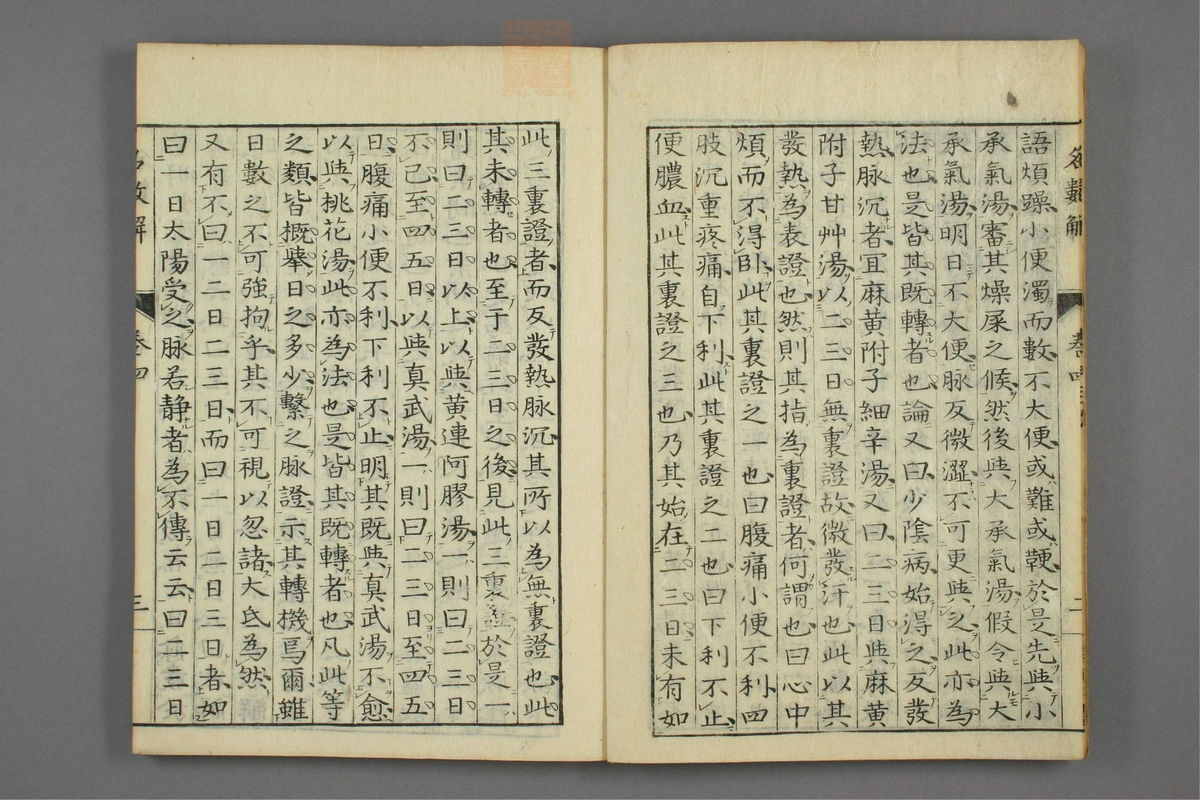 語煩躁小便濁而數不大便或難或鞕於是先與小
承氣湯審其燥屎之候然後與大承氣湯假令與大
承氣湯明日不大便脉反微澀不可更與之此亦為
法也是皆其既轉者也論又曰少陰病始得之反發
熱脉沉者宜麻黄附子細辛湯又曰二三日與麻黄
附子甘艸湯以二三日無裏證故微發汗也此以其
發熱為表證也然則其指為裏證者何謂也曰心中
煩而不得臥此其裏證之一也曰腹痛小便不利四
肢沉重疼痛自下利此其裏證之二也曰下利不止
便膿血此其裏證之三也乃其始在二三日未有如
名數解
卷四
二
此三裏證者而反發熱脉沉其所以為無裏證也此
其未轉者也至于二三日之後見此三裏證於是一
則曰二三日以上以與黄連阿膠湯一則曰二三日
不已至四五日以與真武湯一則曰二三日至四五
日腹痛小便不利下利不止明其既與真武湯不愈
以與桃花湯此亦為法也是皆其既轉者也凡此等
之類皆概舉日之多少繫之脉證示其轉機焉爾雖
日數之不可強拘乎其不可視以忽諸大氐為然
又有不曰一二日二三日而曰一日二日三日者如
曰一日太陽受之脉若静者為不傳云云曰二三日
名數解
卷四
三